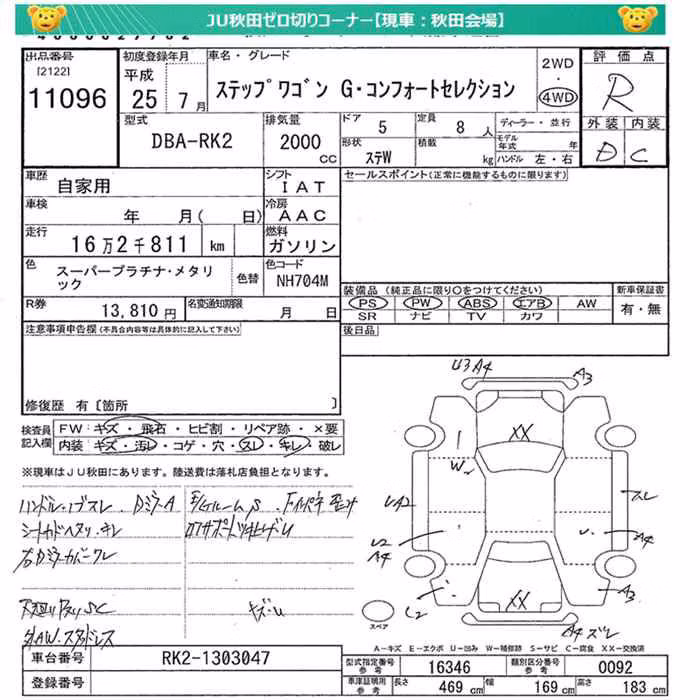 JU秋田ゼロ切りコーナー【現車：秋田会場】
出品番号
[2122]
11096
初度登録年月
平成
25 7月
車名・グレード
ステップワゴン G・コンフォートセレクション
2WD
・
4WD
評価点
R
外装 内装
D C
型式
DBA-RK2
排気量
2000
CC
ドア
5
定員
8 人
形状
ステW
積載
kg
ディーラー・並行
モデル年式 年
ハンドル 左・右
車歴
自家用
シフト
IAT
セールスポイント(正常に機能するものに限ります)
車検
年 月( 日)
冷房
AAC
走行
16万2千811 km
燃料
ガソリン
色
スーパープラチナ・メタリック
色替
色コード
NH704M
装備品(純正品に限り○をつけてください)
PS PW ABS エアB AW
SR ナビ TV カワ
新車保証書
有・無
R券
13,810円
名変通知期限
月 日
後日品
注意事項申告欄(不具合内容等は具体的に記入して下さい)
修復歴 有〔箇所 〕
検査員記入欄
FW キズ・飛石・ヒビ割・リペア跡・×要
内装 キズ・汚レ・コゲ・穴・スレ・キレ・破レ
※現車はJU秋田にあります。陸送費は落札店負担となります。
U3 A4
A3
XX
W2
UA2
スレ
U2
A4
U
A4
C2
XX
A3
A4 ズレ
スペア
A－キズ E－エクボ U－凹み W－補修跡 S－サビ C－腐食 XX－交換済
車台番号
RK2-1303047
登録番号
型式指定番号
参考
16346
類別区分番号
参考
0092
車庫証明用
参考
長さ
469 cm
幅
169 cm
高さ
183 cm